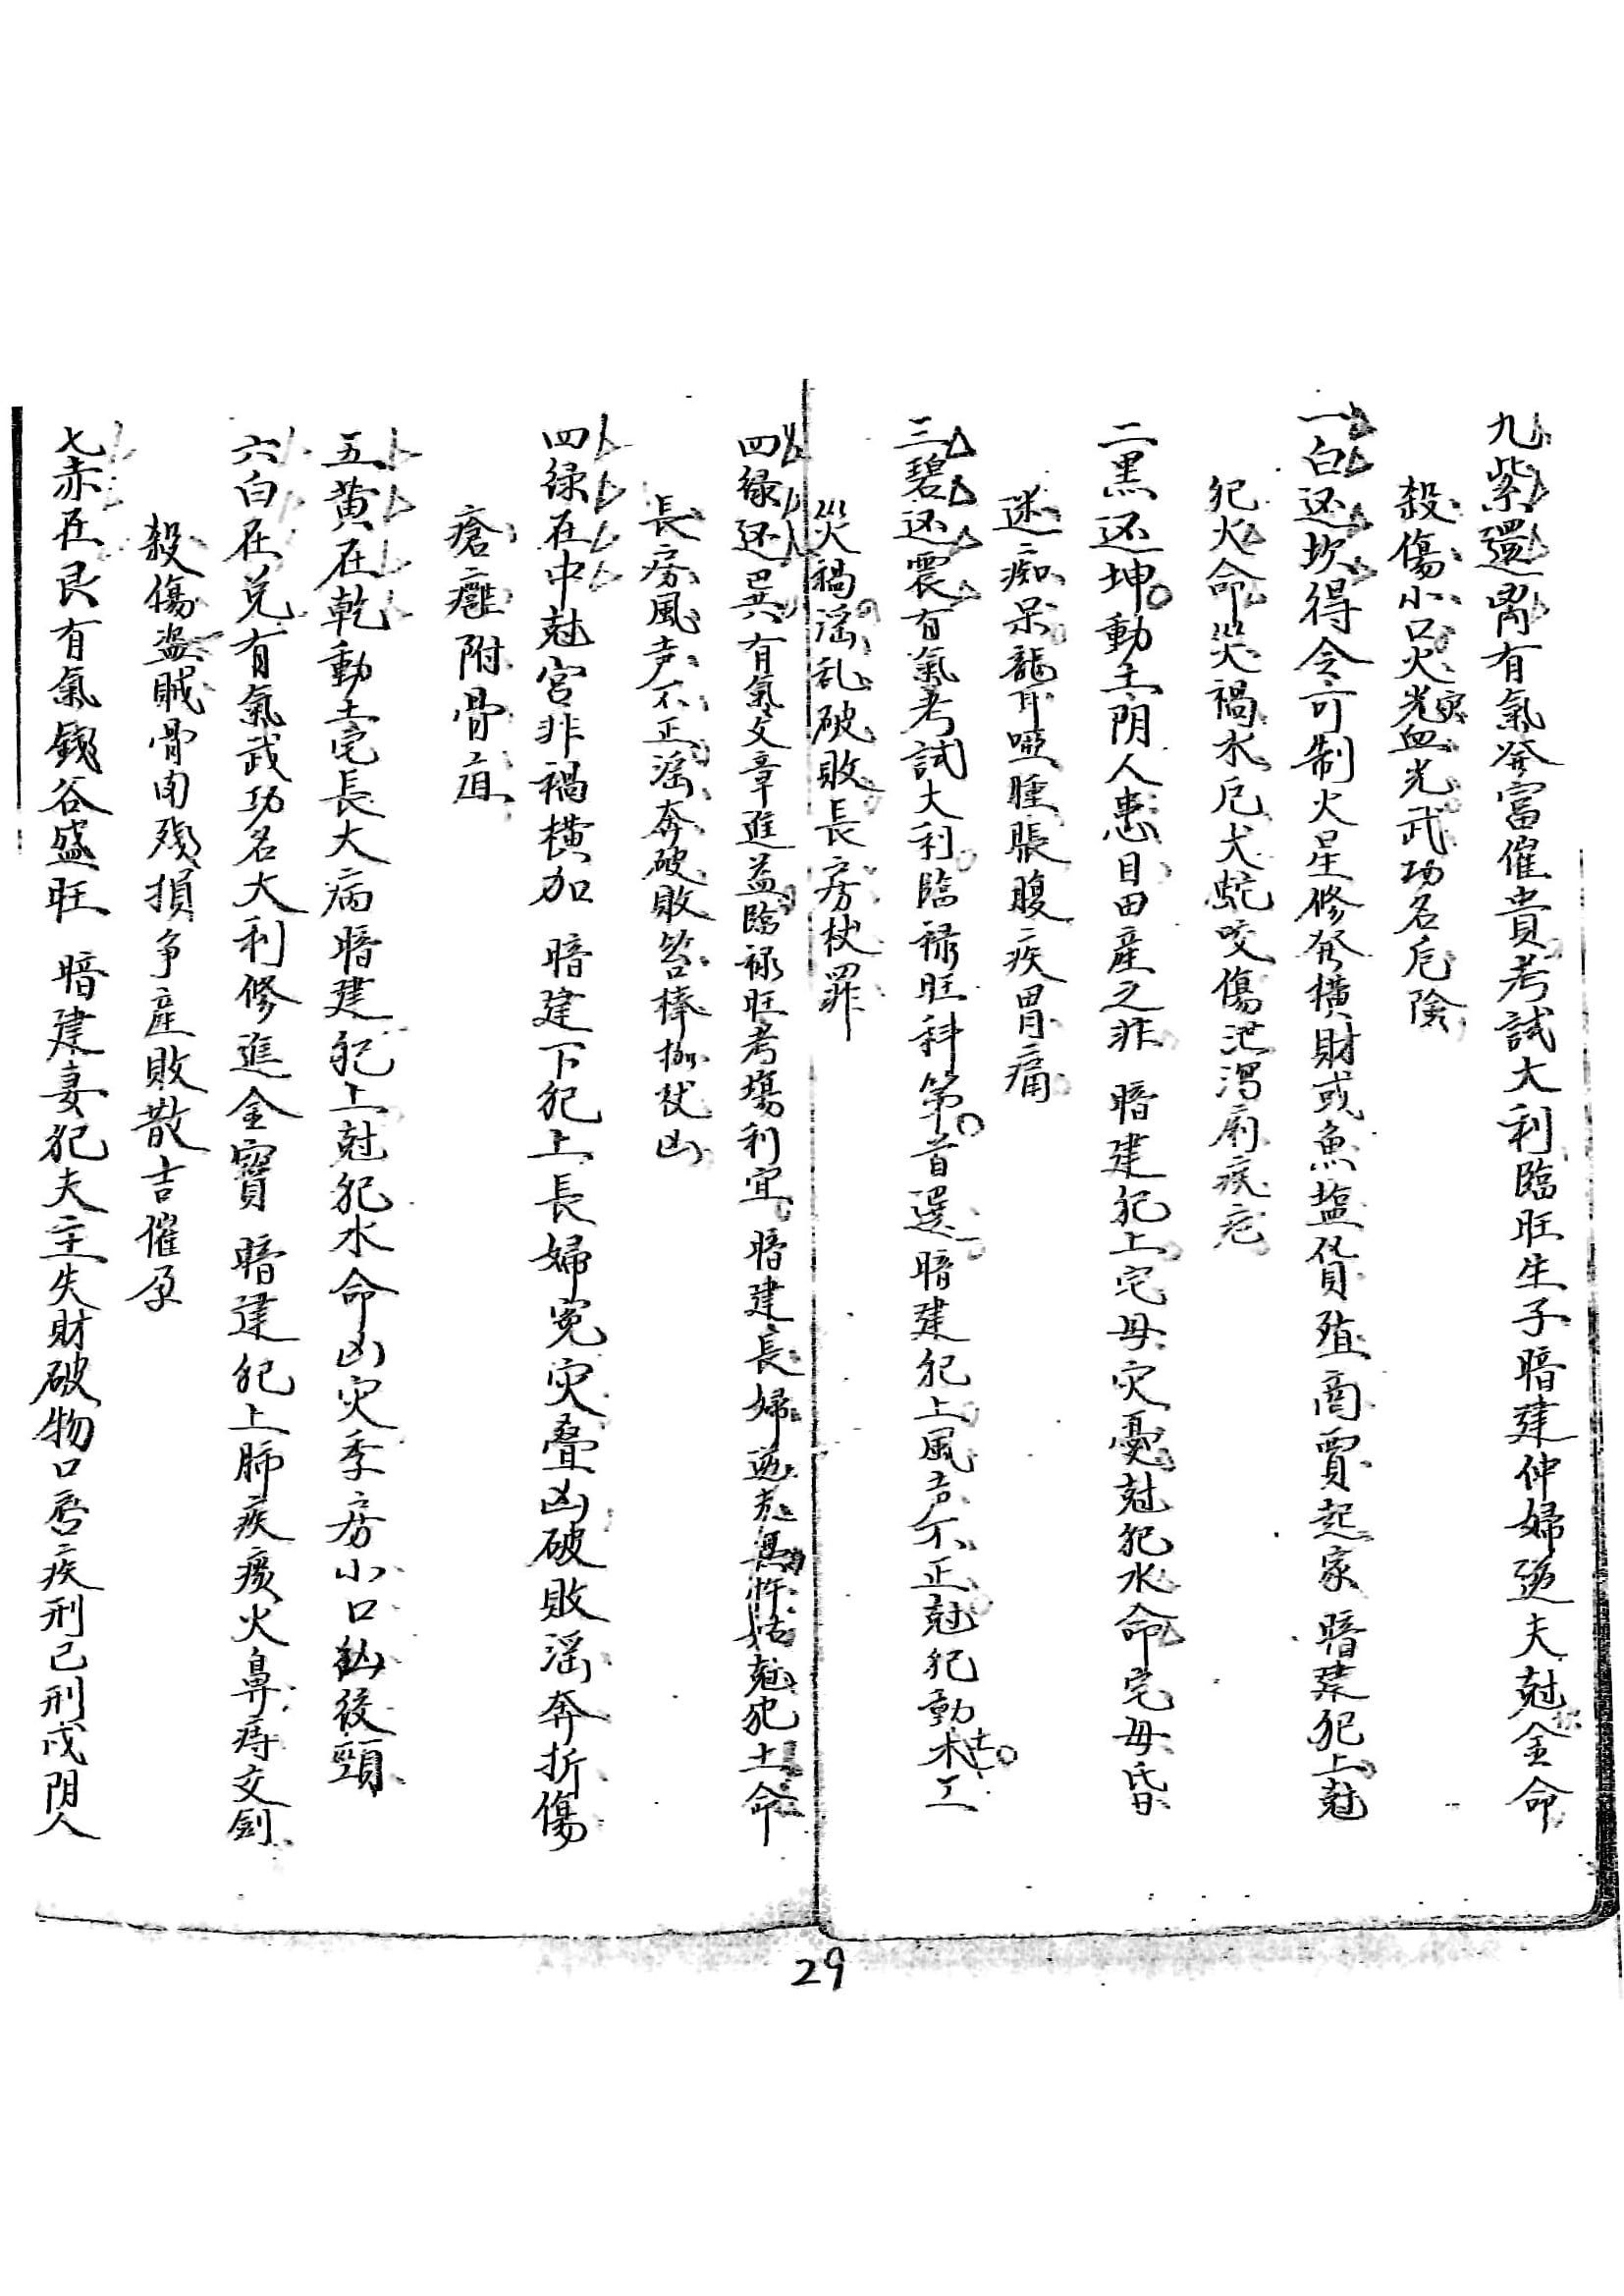 九紫還离有氣發富催貴考試大利臨旺生子暗建仲婦逆夫尅金命
殺傷小口火光血光武功名危險
一白还坎得令可制火星修發橫財或魚塩貨殖商賈起家暗建犯上尅
犯火命災禍水厄犬蛇咬傷泄瀉痢疾厄
二黑还坤動土阴人患目田產之非 暗建犯上宅母灾憂尅犯水命宅母昏
迷痴呆聾耳啞腫脹腹疾胃痛
三碧还震有氣考試大利臨祿旺科第首選暗建犯上風声不正尅犯動木工
災禍滛乱破敗長房杖罪
四緑还巽有氣文章進益臨祿旺考塲利宜 暗建長婦逆忤姑尅犯土命
長房風声不正滛奔破敗笞棒枷杖凶
四緑在中尅宫非禍横加 暗建下犯上長婦冤灾叠凶破敗滛奔折傷
瘡癰附骨疽
五黄在乾動土宅長大病暗建犯上尅犯水命凶灾季房小口後頸
六白在兌有氣武功名大利修進金寶 暗建犯上肺疾痰火鼻痔文劍
殺傷盗賊骨肉殘損争產敗散吉催孕
七赤在艮有氣錢谷盛旺 暗建妻犯夫主失財破物口唇疾刑己刑戌阴人
29